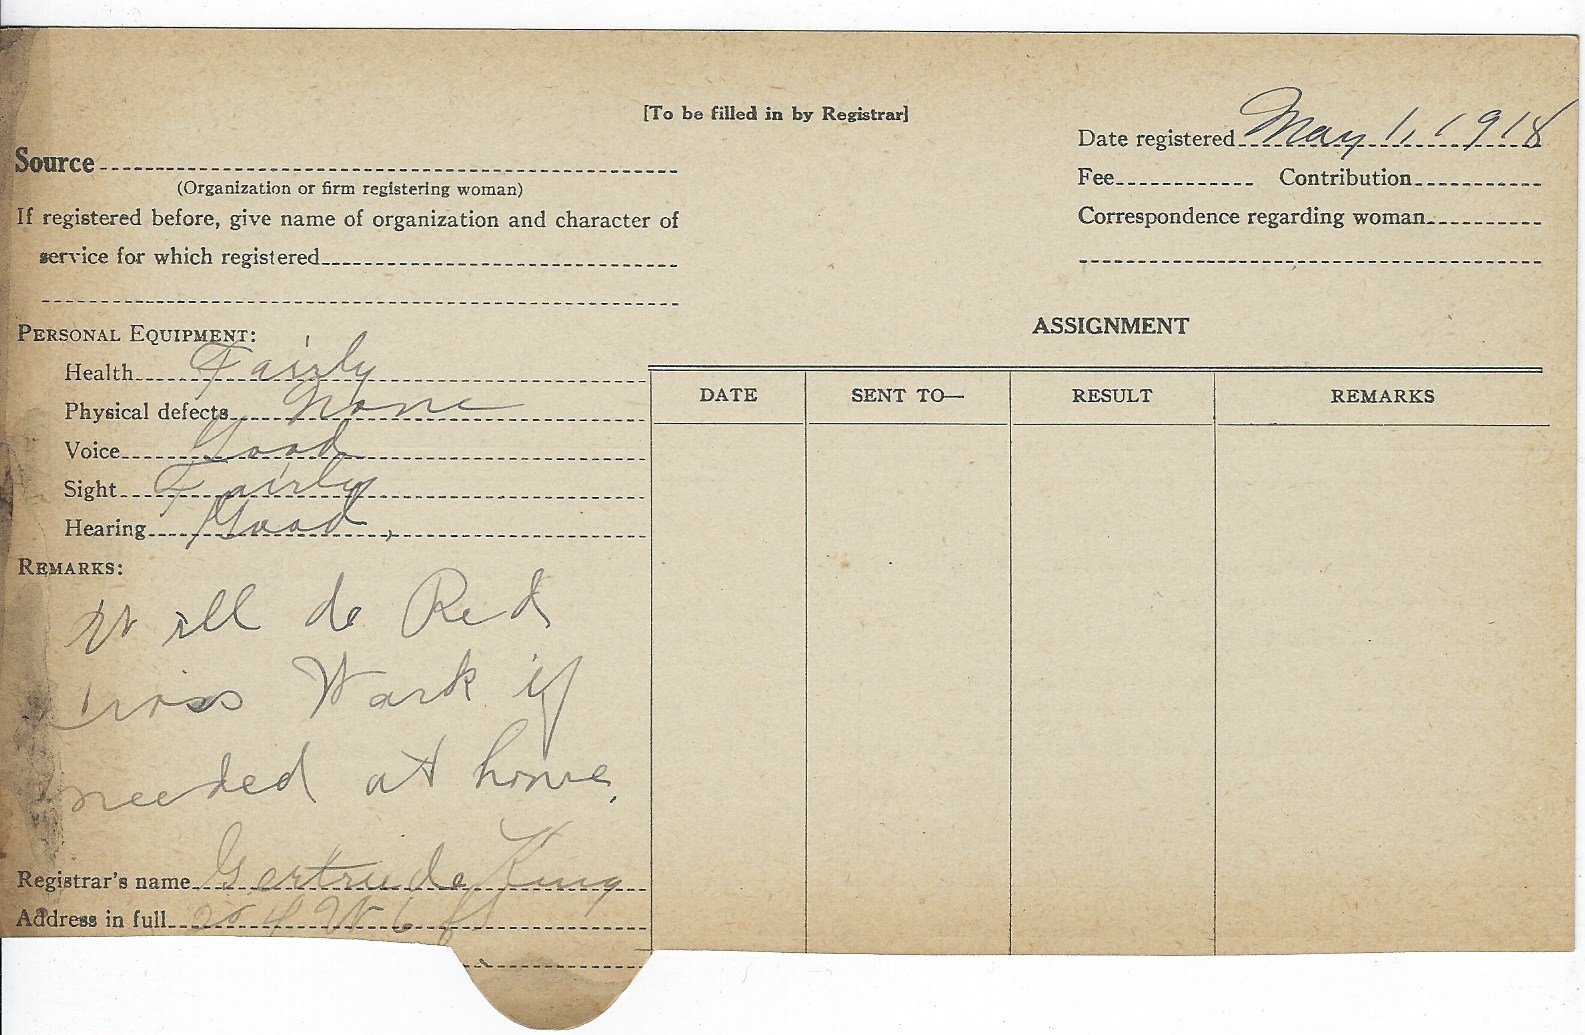 [To be filled in by Registrar]
Date registered May 1, 1918
Source
(Organization or firm registering woman)
Fee Contribution
If registered before, give name of organization and character of
Correspondence regarding woman
service for which registered
PERSONAL EQUIPMENT:
Health Fairly
Physical defects None
Voice Good
Sight Fairly
Hearing Good,
REMARKS:
Will do Red
Cross Work if
needed at home.
Registrar's name Gertrude King
Address in full W 6
ASSIGNMENT
DATE SENT TO— RESULT REMARKS